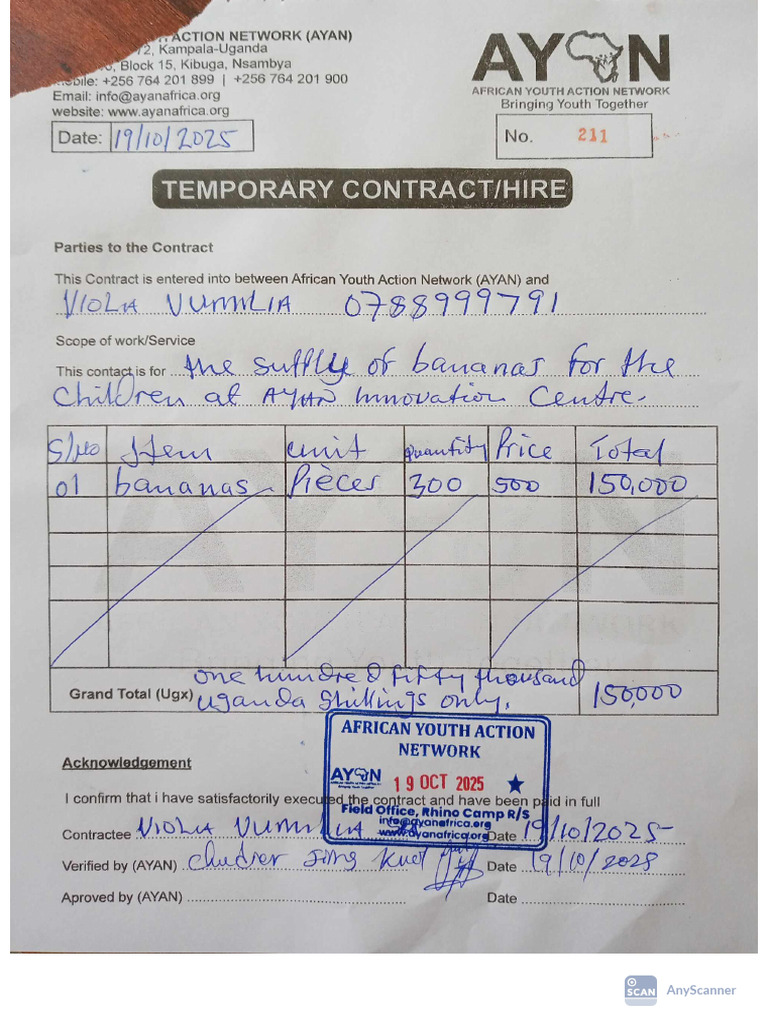 ACTION NETWORK (AYAN)
72, Kampala-Uganda
, Block 15, Kibuga, Nsambya
Mobile: +256 764 201 899 | +256 764 201 900
Email: info@ayanafrica.org
website: www.ayanafrica.org
AYAN
AFRICAN YOUTH ACTION NETWORK
Bringing Youth Together
Date: 19/10/2025
No. 211
TEMPORARY CONTRACT/HIRE
Parties to the Contract
This Contract is entered into between African Youth Action Network (AYAN) and
VIOLA VUMILIA 0788999791
Scope of work/Service
This contact is for the supply of bananas for the
Children at AYAN Innovation Centre.
S/No Item unit quantity Price Total
01 bananas Pieces 300 500 150,000
one hundred fifty thousand
Grand Total (Ugx) Uganda Shillings only. 150,000
Acknowledgement
I confirm that i have satisfactorily executed the contract and have been paid in full
AFRICAN YOUTH ACTION
NETWORK
AYAN
Bringing Youth Together
19 OCT 2025
Field Office, Rhino Camp R/S
info@ayanafrica.org
www.ayanafrica.org
Contractee VIOLA VUMILIA Date 19/10/2025
Verified by (AYAN) Date 19/10/2025
Aproved by (AYAN) Date
SCAN AnyScanner